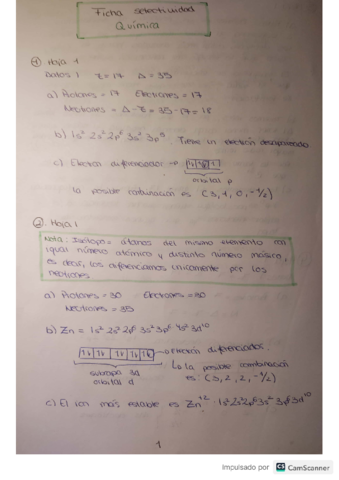 Ficha selectividad
Química
① Hoja 1
Datos: Z = 17 A = 35
a) Protones = 17 Electrones = 17
Neutrones = A - Z = 35 - 17 = 18
b) 1s² 2s² 2p⁶ 3s² 3p⁵ Tiene un electrón desapareado
c) Electrón diferenciador →
orbital p
La posible combinación es (3, 1, 0, -1/2)
② Hoja 1
Nota: Isótopo = átomos del mismo elemento con
igual número atómico y distinto número másico,
es decir, los diferenciamos únicamente por los
neutrones
a) Protones = 30 Electrones = 30
Neutrones = 35
b) Zn = 1s² 2s² 2p⁶ 3s² 3p⁶ 4s² 3d¹⁰
→ electrón diferenciador
subcapa 3d
orbital d
↳ La posible combinación
es: (3, 2, 2, -1/2)
c) El ion más estable es Zn⁺² : 1s² 2s² 2p⁶ 3s² 3p⁶ 3d¹⁰
1
Impulsado por CS CamScanner